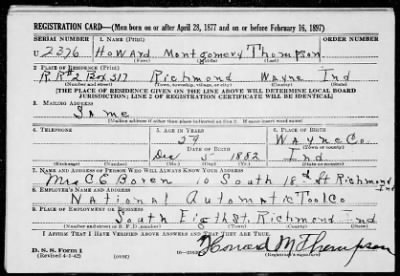 REGISTRATION CARD—(Men born on or after April 28, 1877 and on or before February 16, 1897)
SERIAL NUMBER 1. NAME (Print) ORDER NUMBER
U 2376 Howard Montgomery Thompson
(First) (Middle) (Last)
2. PLACE OF RESIDENCE (Print)
R.R#2 Box 317 Richmond Wayne Ind
(Number and street) (Town, township, village, or city) (County) (State)
[THE PLACE OF RESIDENCE GIVEN ON THE LINE ABOVE WILL DETERMINE LOCAL BOARD
JURISDICTION; LINE 2 OF REGISTRATION CERTIFICATE WILL BE IDENTICAL]
3. MAILING ADDRESS
Same
[Mailing address if other than place indicated on line 2. If same insert word same]
4. TELEPHONE 5. AGE IN YEARS 6. PLACE OF BIRTH
59 Wayne Co.
DATE OF BIRTH (Town or county)
Dec 5 1882 Ind
(Exchange) (Number) (Mo.) (Day) (Yr.) (State or country)
7. NAME AND ADDRESS OF PERSON WHO WILL ALWAYS KNOW YOUR ADDRESS
Mrs C E Boren 10 South 18d St Richmond Ind
8. EMPLOYER'S NAME AND ADDRESS
National Automatic Tool Co
9. PLACE OF EMPLOYMENT OR BUSINESS
South Eigth St. Richmond Ind
(Number and street or R. F. D. number) (Town) (County) (State)
I AFFIRM THAT I HAVE VERIFIED ABOVE ANSWERS AND THAT THEY ARE TRUE.
D. S. S. Form 1 Howard M Thompson
(Revised 4-1-42) (over) (Registrant's signature)